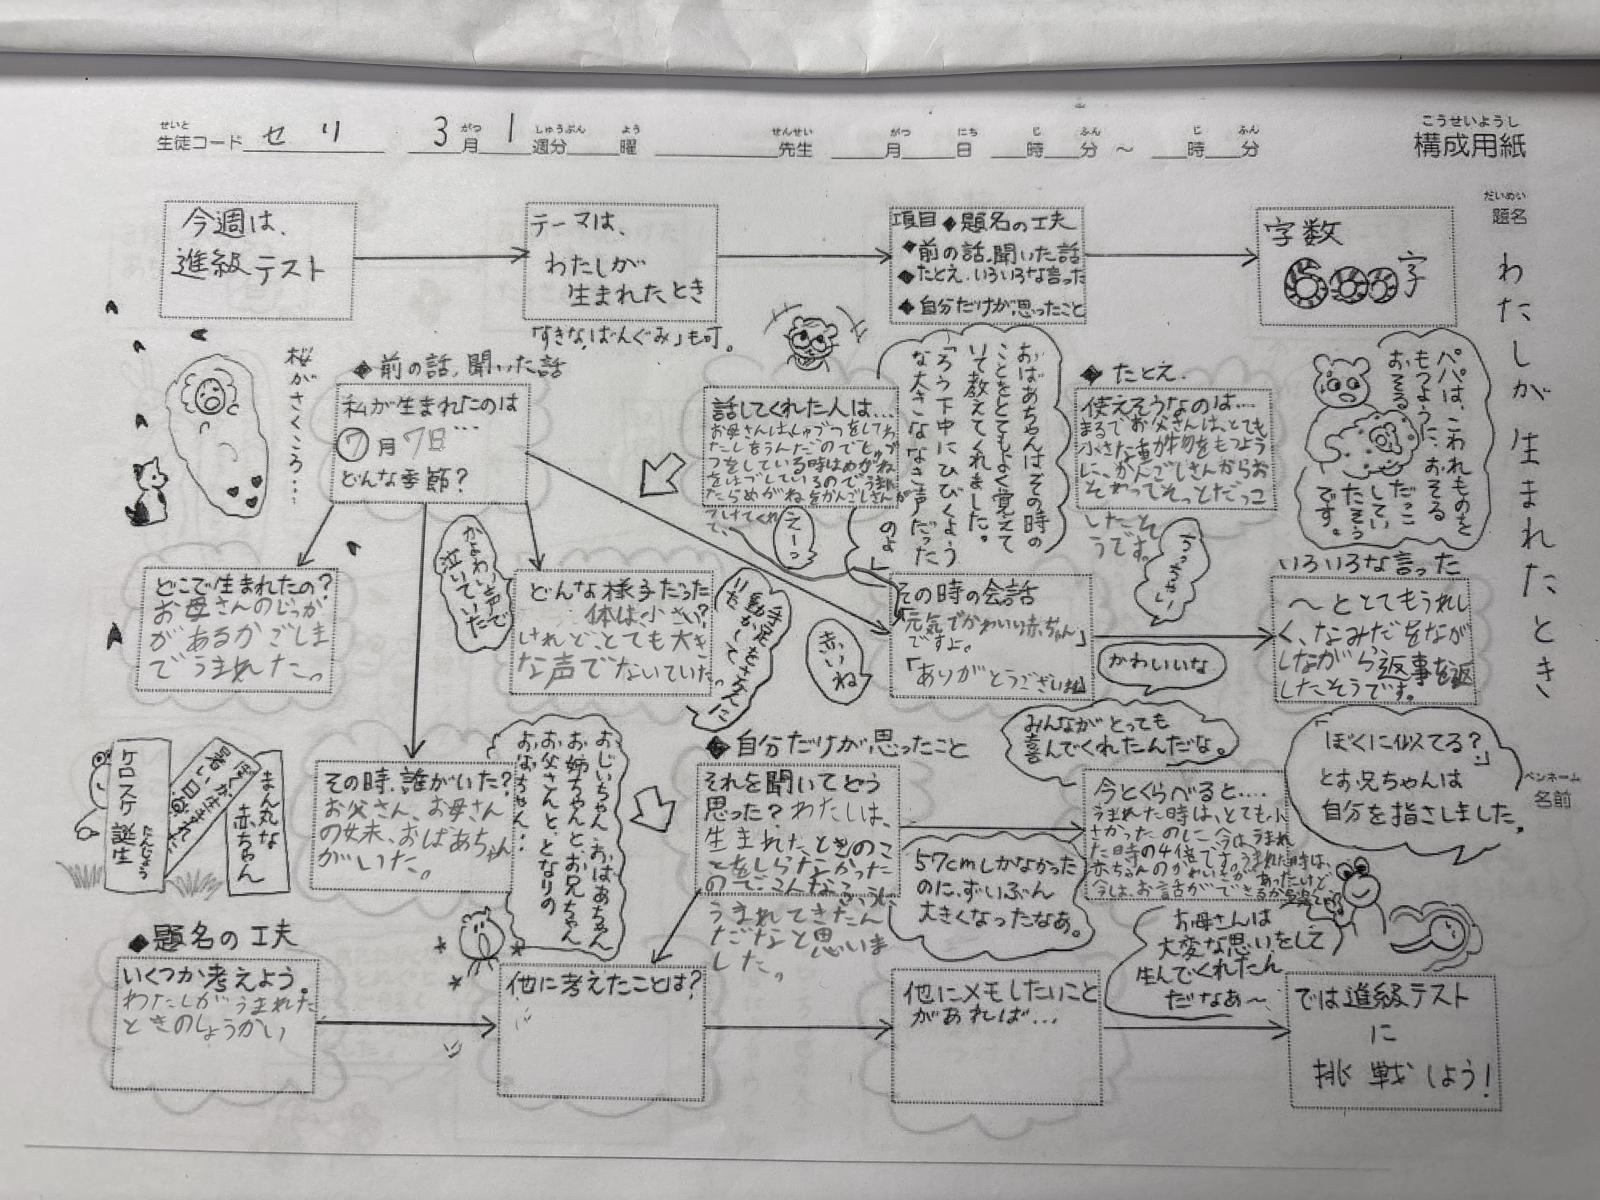 せいと
生徒コード セリ
3 がつ 月 1 しゅうぶん 週分 よう 曜
せんせい 先生
がつ 月 にち 日 じ 時 ふん 分 ～ じ 時 ふん 分
こうせいようし
構成用紙
だいめい
題名
わたしが生まれたとき
ペンネーム
名前
今週は、
進級テスト
テーマは、
わたしが
生まれたとき
「すきなばんぐみ」も可。
項目◆題名の工夫
◆前の話、聞いた話
◆たとえ・いろいろな言った
◆自分だけが思ったこと
字数
600字
桜がさくころ…
◆前の話、聞いた話
私が生まれたのは
⑦月7日…
どんな季節?
話してくれた人は…
お母さんはしゅづつをしてわ
たしをうんだのでしゅづ
つをしている時はめがね
をはづしているので、うまれ
たらめがねをかんごしさんが
つけてくれ
て、
えーっ
おばあちゃんはその時の
ことをとてもよく覚えて
いて教えてくれました。
「ろう下中にひびくよう
な大きななき声だった
のよ」
◆たとえ.
使えそうなのは…
まるでお父さんは、とても
小さた重が物をもつよう
に、かんごしさんからお
そわってそっとだっこ
したそ
うです。
パパは、こわれものを
もつように、おそる
おそる
だっこ
してい
たそう
です。
どこで生まれたの?
お母さんのじっか
があるかごしま
でうまれた。
かよわい声で
泣いていた
どんな様子だった
体は小さい?
けれど、とても大き
な声でないていた。
手足をささえに
動かして
いた
赤いね
その時の会話
「元気でかわいい赤ちゃん」
ですよ。
「ありがとうございます」
ちっちゃい
かわいいな
いろいろな言った
～ととてもうれし
く、なみだをなが
しながら返事を返
したそうです。
その時、誰がいた?
お父さん、お母さん
の妹、おばあちゃん
がいた。
おじいちゃん、おばあちゃん
お姉ちゃんと、お兄ちゃん
お父さんと、となりの
おなちゃん…
◆自分だけが思ったこと
それを聞いてどう
思った?わたしは、
生まれたときのこ
とをしらなかった
のでこんなふうに
うまれてきたん
だなと思いま
した。
みんながとっても
喜んでくれたんだな。
今とくらべると…
うまれた時は、とても小
さかったのに今はうまれ
た時の4倍です。うまれた時は、
赤ちゃんのかわいさがあったけど
今は、お話ができるか
「ぼくに似てる?」
とお兄ちゃんは
自分を指さしました。
57cmしかなかった
のに、ずいぶん
大きくなったなあ。
お母さんは
大変な思いをして
生んでくれたん
だなあ～
ケロスケ誕生
たんじょう
ぼくが生まれた
暑い日
まん丸な
赤ちゃん
◆題名の工夫
いくつか考えよう。
わたしがうまれた
ときのしょうかい
他に考えたことは?
他にメモしたいこと
があれば…
では進級テスト
に
挑戦しよう!